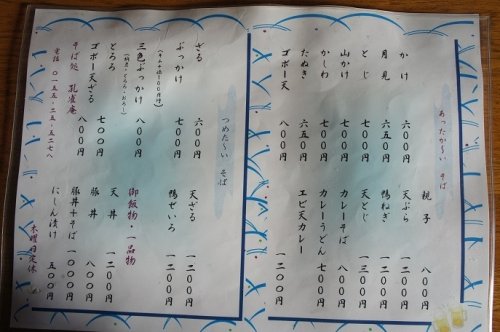 あったか〜い そば
かけ 六〇〇円
月見 六五〇円
とじ 七〇〇円
山かけ 七〇〇円
かしわ 七〇〇円
たぬき 六五〇円
ゴボー天 七〇〇円
親子 八〇〇円
天ぷら 一二〇〇円
鴨ねぎ 一二〇〇円
天とじ 一三〇〇円
カレーそば 八〇〇円
カレーうどん 七〇〇円
エビ天カレー 一二〇〇円
つめた〜い そば
ざる 六〇〇円
ぶっかけ 七〇〇円
三色ぶっかけ 八〇〇円
とろろ 七〇〇円
ゴボー天ざる 八〇〇円
天ざる 一二〇〇円
鴨せいろ 一二〇〇円
御飯物・一品物
天丼 一二〇〇円
豚丼 八〇〇円
豚丼+そば 一〇〇〇円
にしん漬け 五〇〇円
そば処 孔雀庵
電話 〇一五五・二五・五二七八
木曜日定休